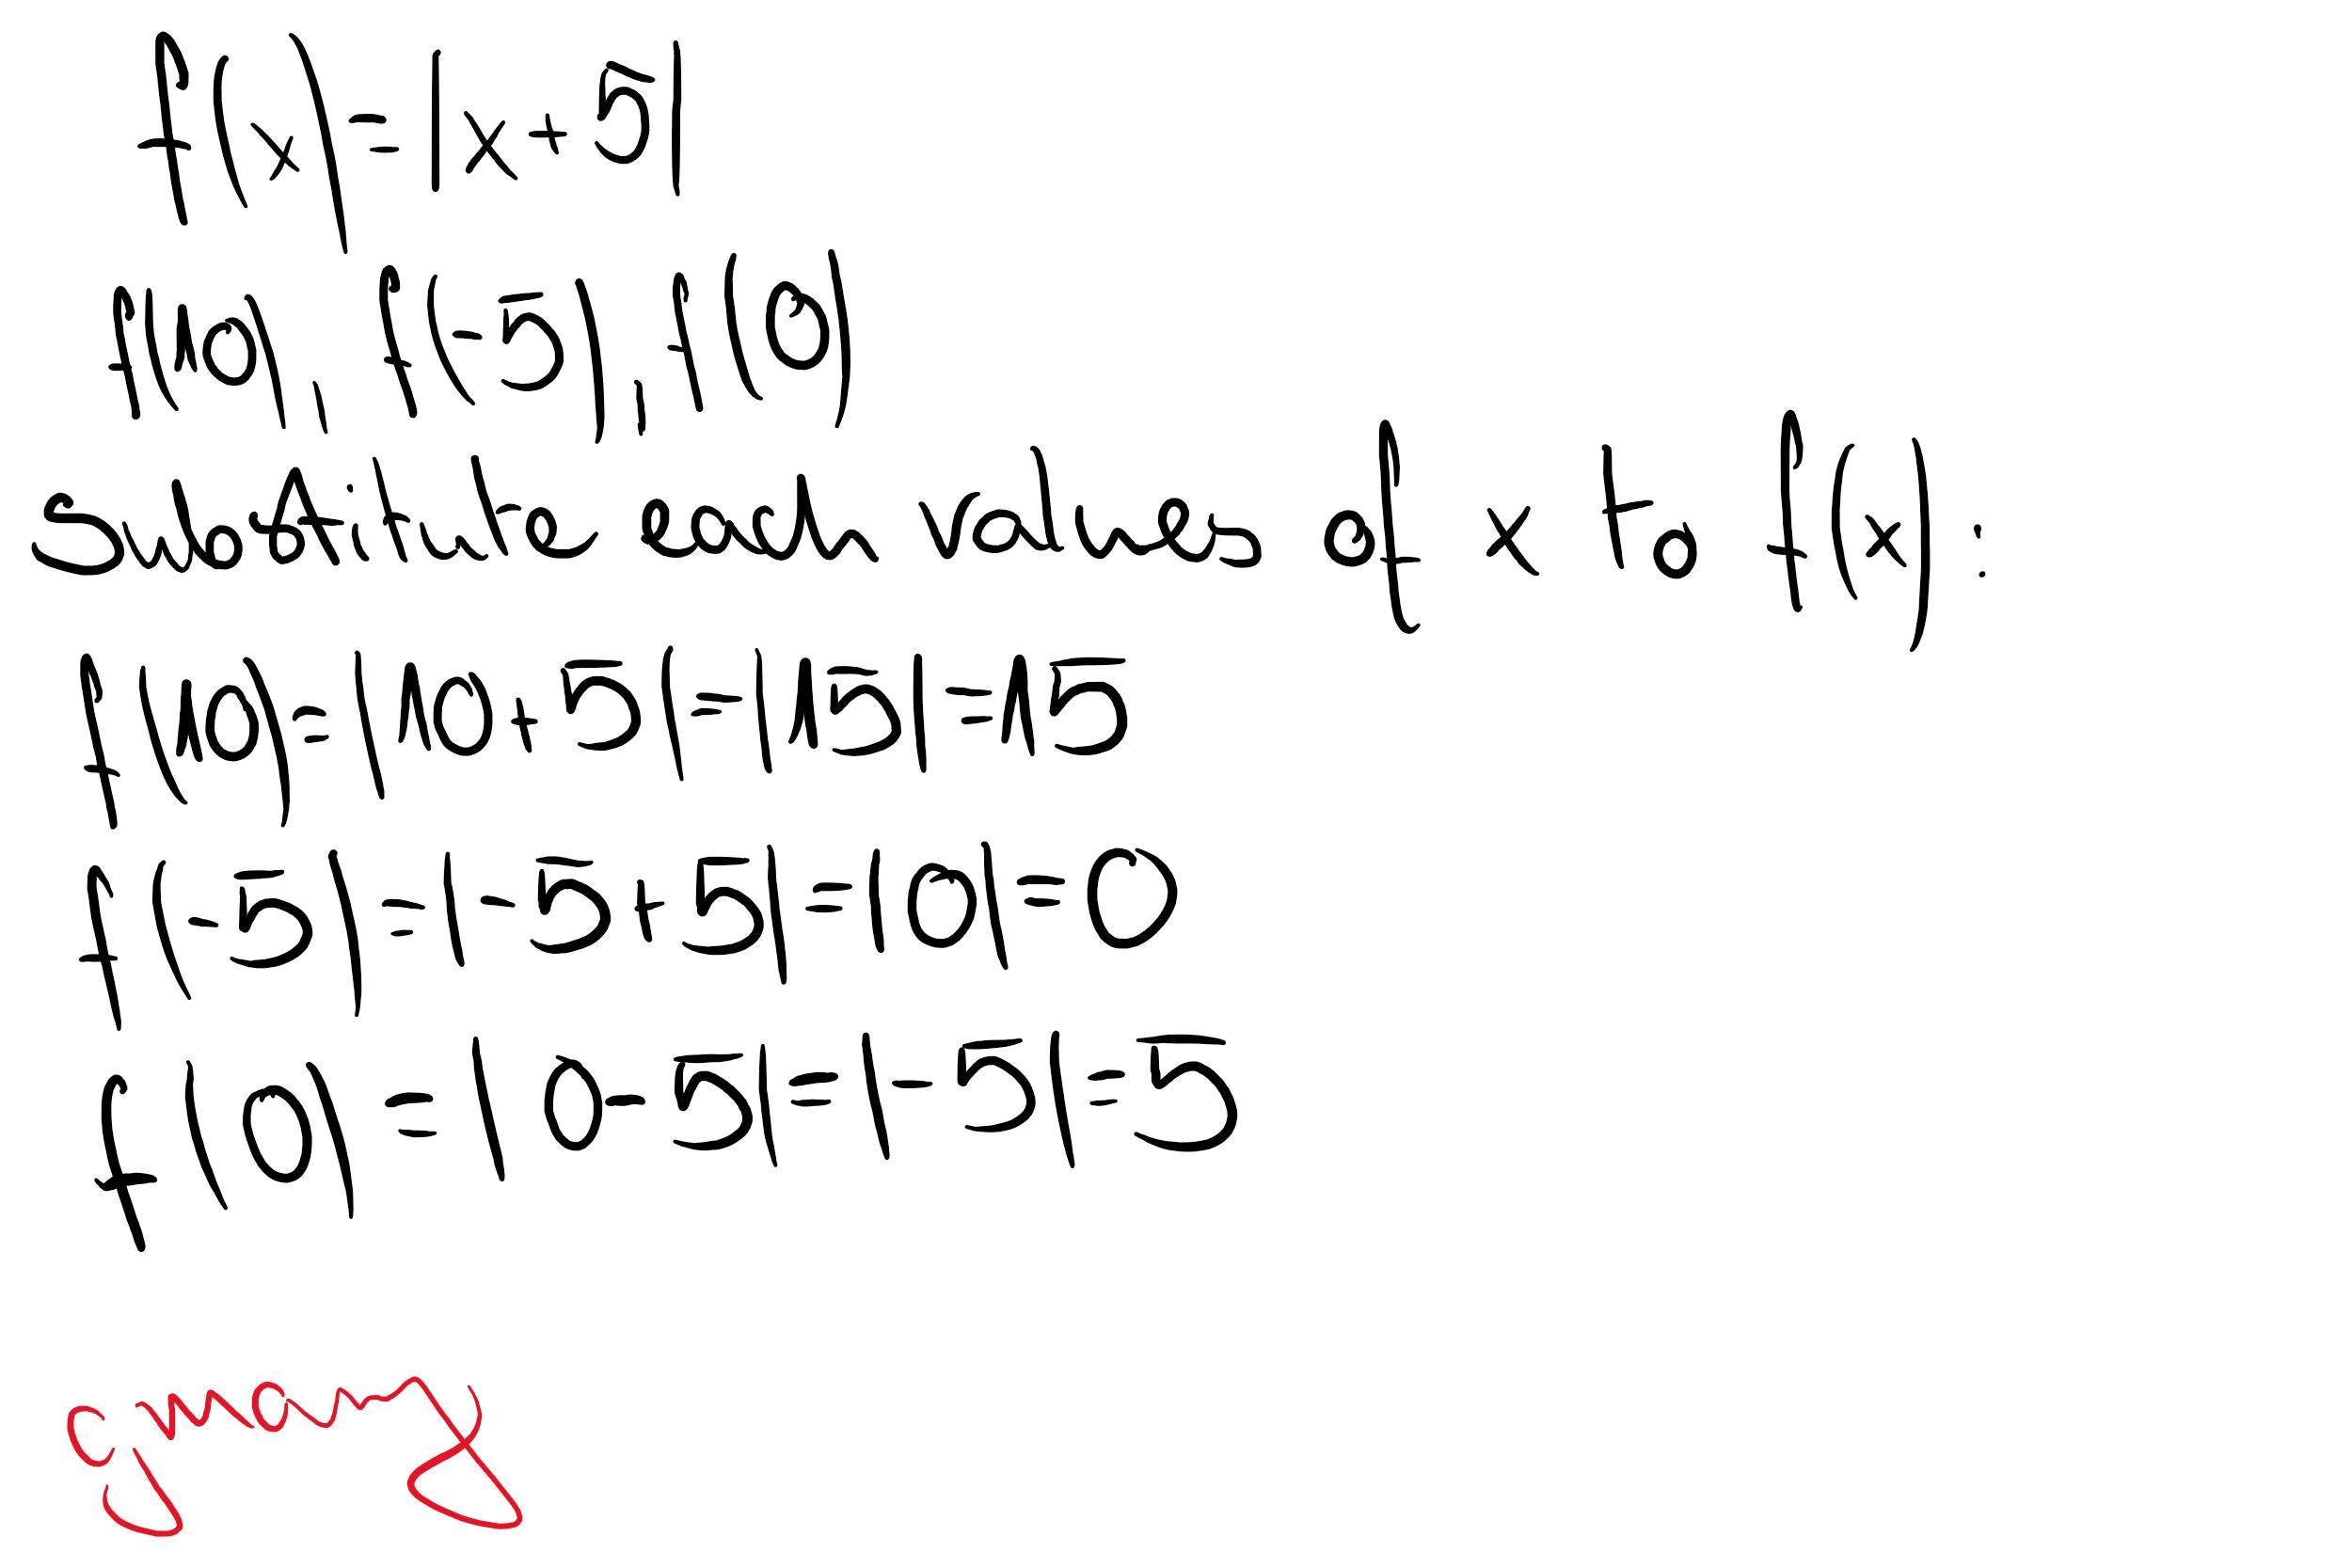 f(x)=|x+5|
f(10), f(-5), f(0)
Substitute each values of x to f(x):
f(10)=|10+5|=|15|=15
f(-5)=|-5+5|=|0|=0
f(0)=|0-5|=|-5|=5